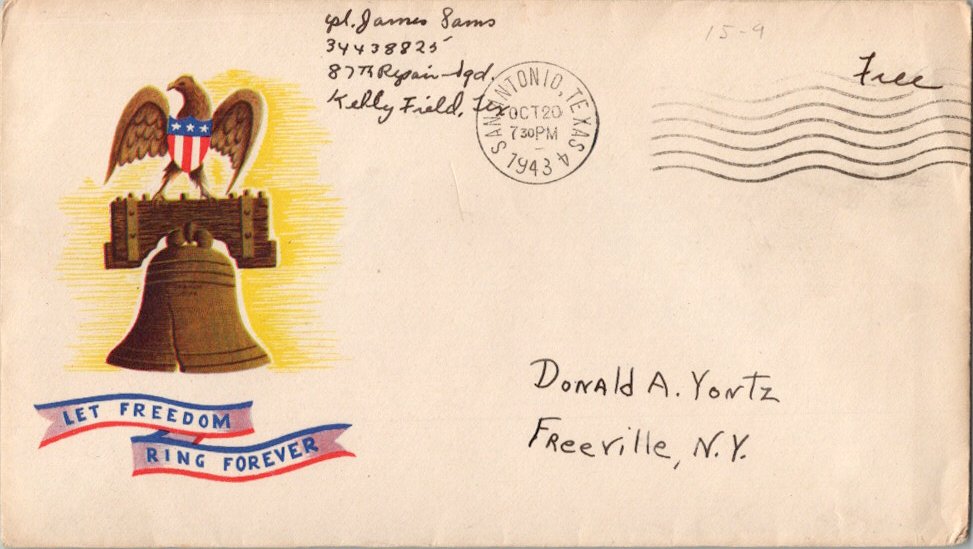 Cpl. James Sams
34438825
87th Repair Sqd.
Kelly Field, Tex
SAN ANTONIO, TEXAS 4
OCT 20
730PM
1943
15-9
Free
LET FREEDOM
RING FOREVER
Donald A. Yontz
Freeville, N.Y.